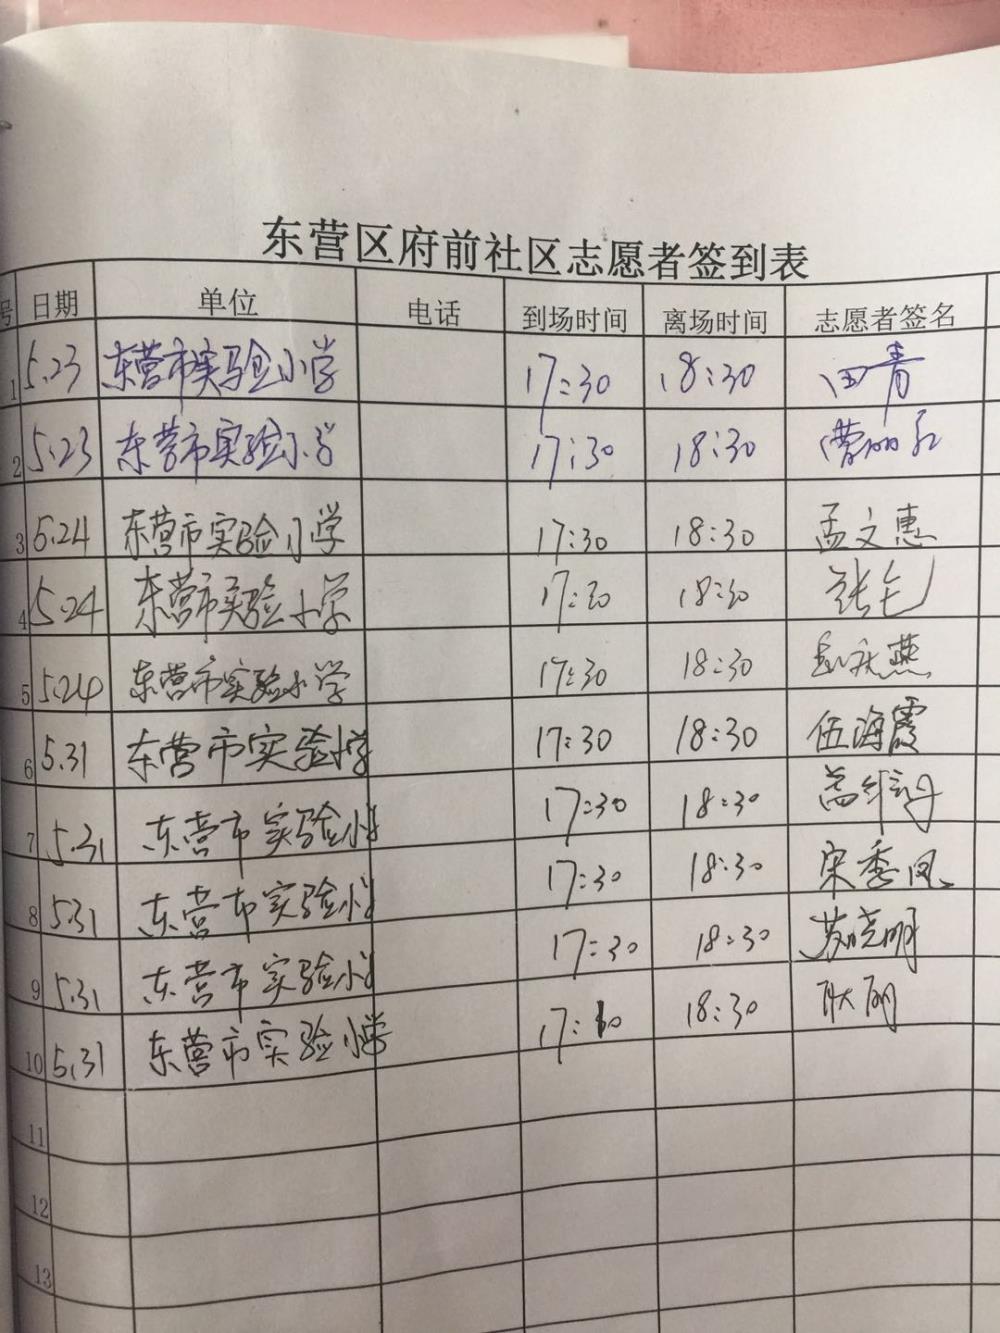 东营区府前社区志愿者签到表
号 日期 单位 电话 到场时间 离场时间 志愿者签名
1 5.23 东营市实验小学 17:30 18:30 田青
2 5.23 东营市实验小学 17:30 18:30 曹丽红
3 5.24 东营市实验小学 17:30 18:30 孟文惠
4 5.24 东营市实验小学 17:30 18:30 张
5 5.24 东营市实验小学 17:30 18:30 燕
6 5.31 东营市实验小学 17:30 18:30 伍海霞
7 5.31 东营市实验小学 17:30 18:30
8 5.31 东营市实验小学 17:30 18:30 宋季凤
9 5.31 东营市实验小学 17:30 18:30 苏晓明
10 5.31 东营市实验小学 17: 18:30 耿丽
11
12
13